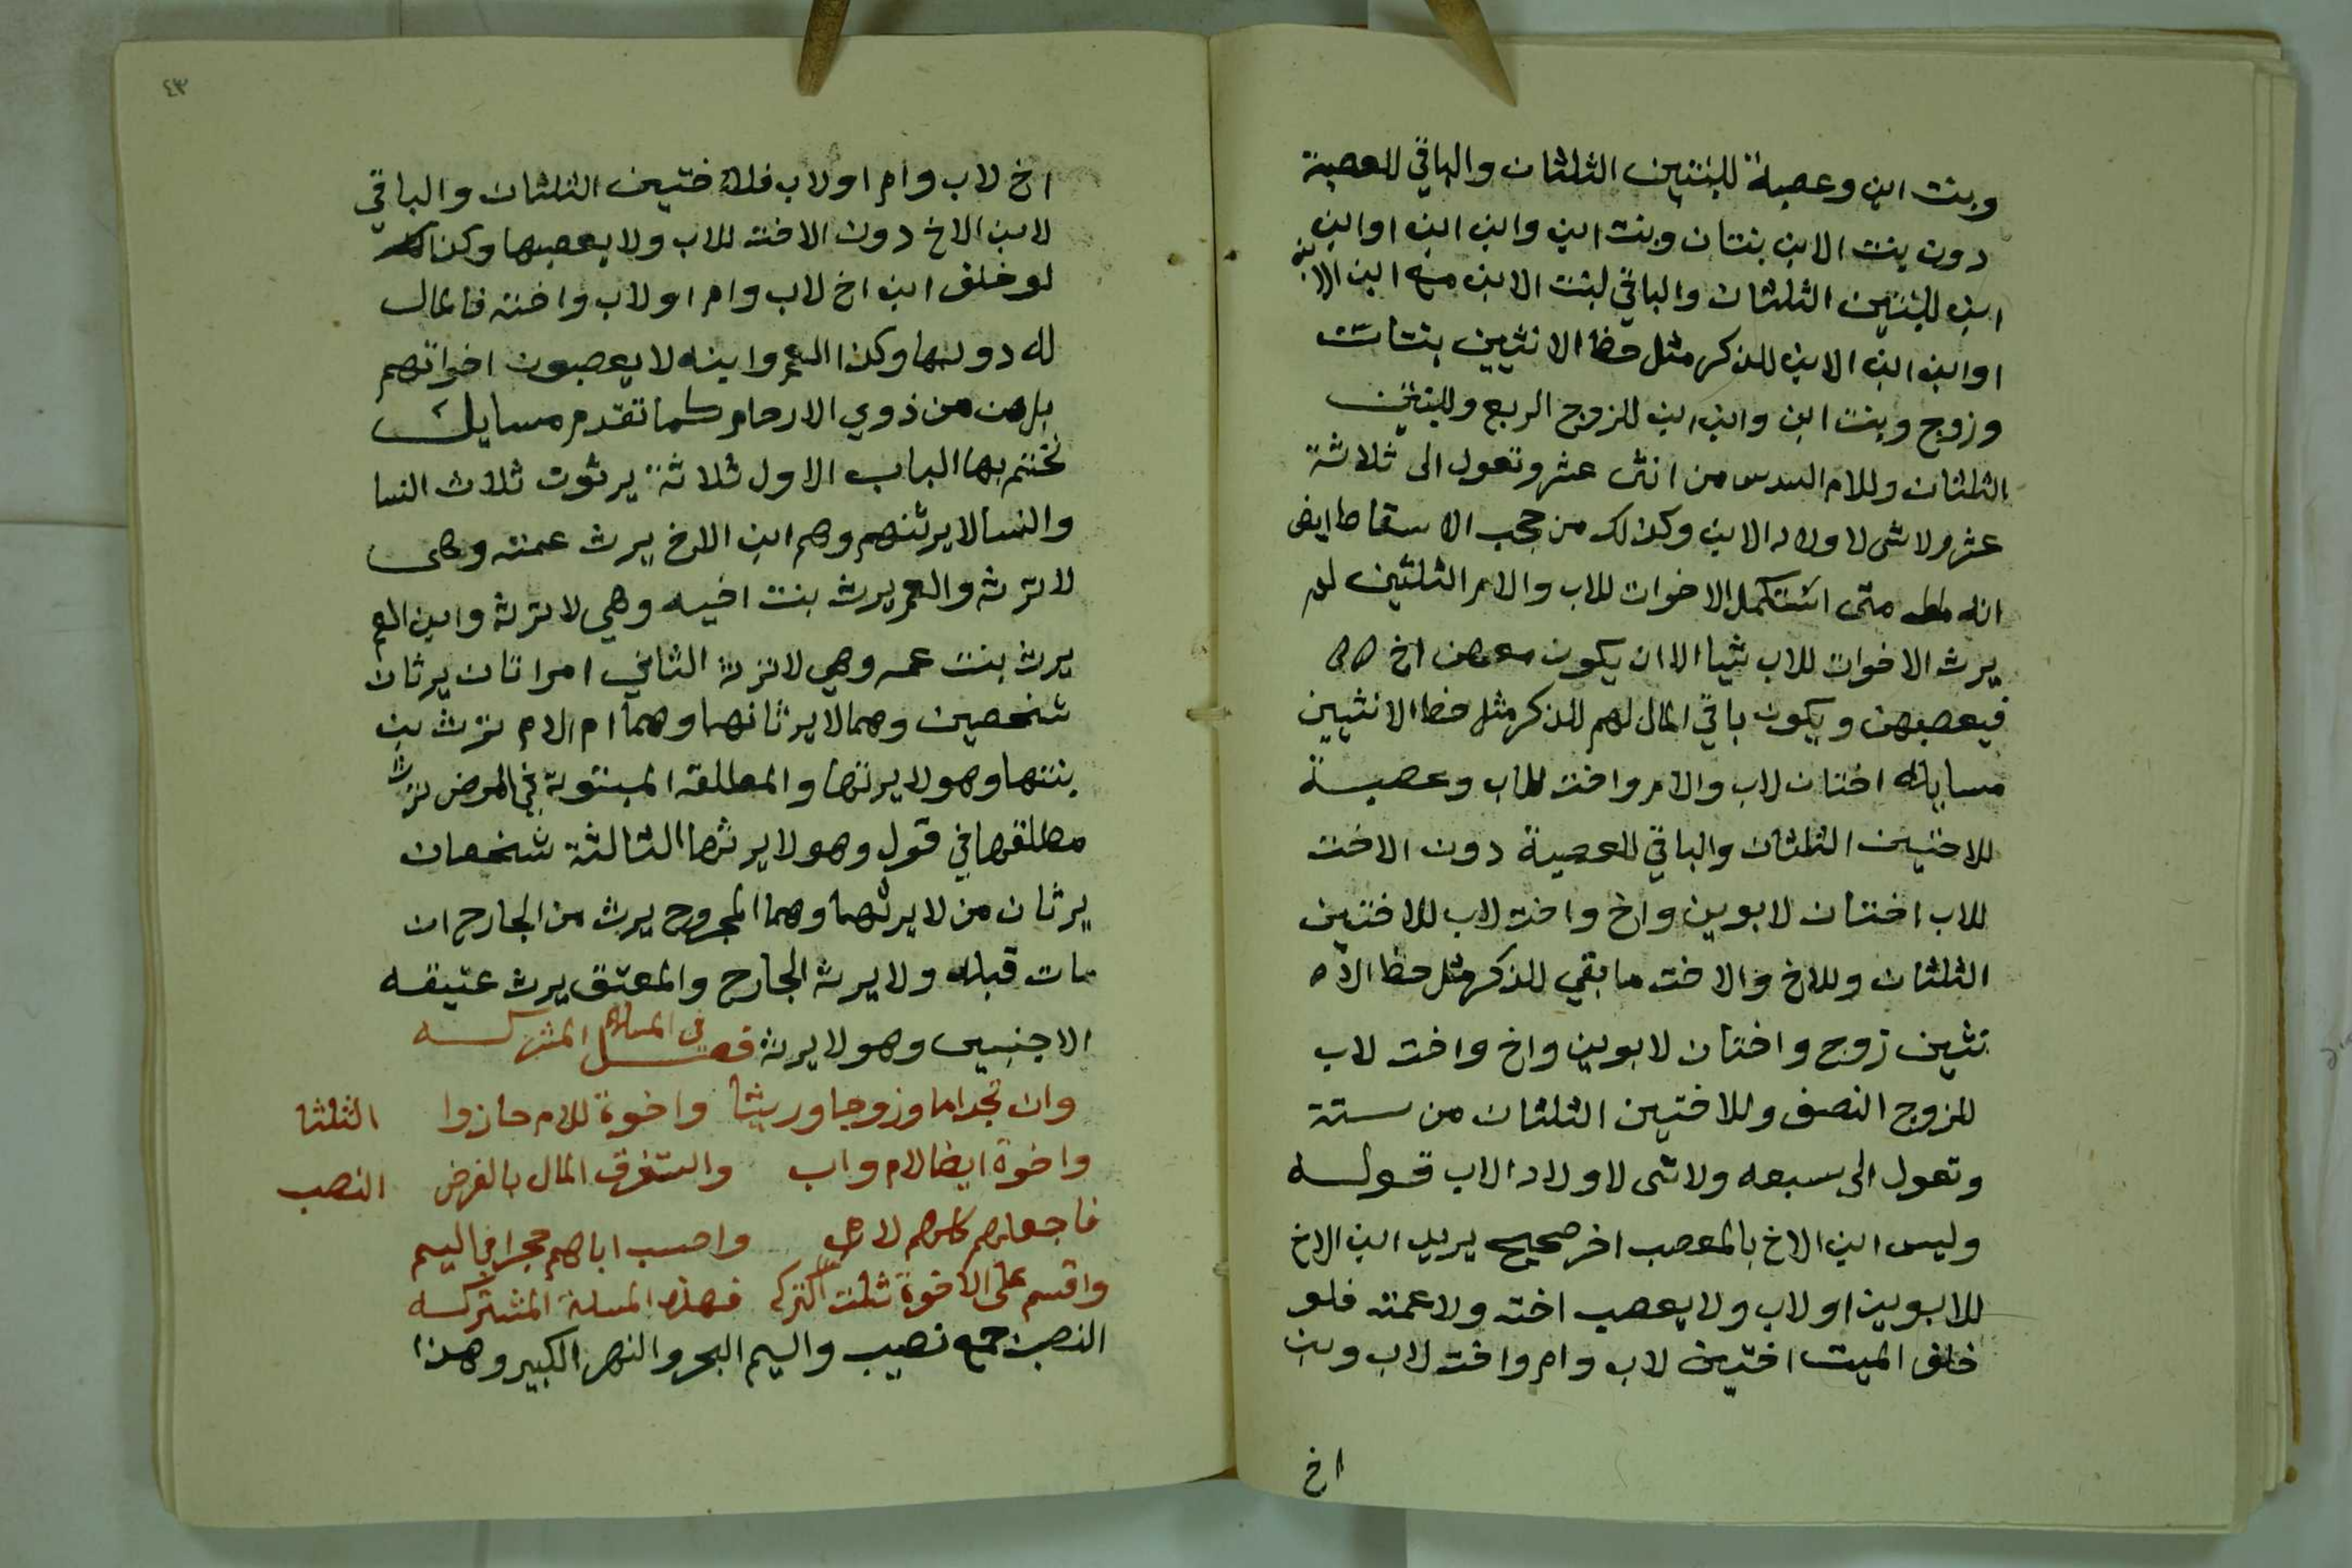 وبنت ابن وعصبة للبنتين الثلثان والباقي للعصبة
دون بنت الابن بنتان وبنت ابن وابن ابن او ابن
ابن للبنتين الثلثان والباقي لبنت الابن مع ابن الابن
او ابن ابن الابن للذكر مثل حظ الانثيين بنتان
وزوج وبنت ابن وابن ابن للزوج الربع وللبنتين
الثلثان وللام السدس من اثنى عشر وتعول الى ثلاثة
عشر ولا شى لاولاد الابن وكذلك من حجب الاسقاط ايض
انه متى استكمل الاخوات للاب والام الثلثين لم
يرث الاخوات للاب شيا الا ان يكون معهن اخ
فيعصبهن ويكون باقي المال لهم للذكر مثل حظ الانثيين
مسايله اختان لاب والام واخت للاب وعصبة
للاختين الثلثان والباقي للعصبة دون الاخت
للاب اختان لابوين واخ واخت لاب للاختين
الثلثان وللاخ والاخت ما بقي للذكر مثل حظ الا
نثيين زوج واختان لابوين واخ واخت لاب
للزوج النصف وللاختين الثلثان من ستة
وتعول الى سبعه ولا شى لاولاد الاب قوله
وليس ابن الاخ بالمعصب اخر صحيح يريد ابن الاخ
للابوين او لاب ولا يعصب اخته ولا عمته فلو
خلف الميت اختين لاب وام واخت لاب وبن
اخ
٤٣
اخ لاب وام او لاب فللاختين الثلثان والباقي
لابن الاخ دون الاخت للاب ولا يعصبها وكذلك
لو خلف ابن اخ لاب وام او لاب واخته فالمال
له دونها وكذا العم وابنه لا يعصبون اخواتهم
بل هن من ذوي الارحام كما تقدم مسايل
نختم بها الباب الاول ثلاثة يرثون ثلاث النسا
والنسا لا يرثنهم وهم ابن الاخ يرث عمته وهى
لا ترثه والعم يرث بنت اخيه وهي لا ترثه وابن العم
يرث بنت عمه وهي لا ترثه الثاني امراتان يرثان
شخصين وهما لا يرثانهما وهما ام الام ترث بن
بنتها وهو لا يرثها والمطلقة المبتوتة في المرض ترث
مطلقها في قول وهو لا يرثها الثالثة شخصان
يرثان من لا يرثهما وهما المجروح يرث من الجارح ان
مات قبله ولا يرثه الجارح والمعتق يرث عتيقه
الاجنبى وهو لا يرثه فصل في المسلة المشركه
وان تجد اما وزوجا ورثا واخوة للام حازوا الثلثا
واخوة ايضا لام واب واستغرق المال بالفرض النصب
فاجعلهم كلهم لام واحسب اباهم حجرا في اليم
واقسم على الاخوة ثلث التركه فهذه المسلة المشتركه
النصب جمع نصيب واليم البحر والنهر الكبير وهذا